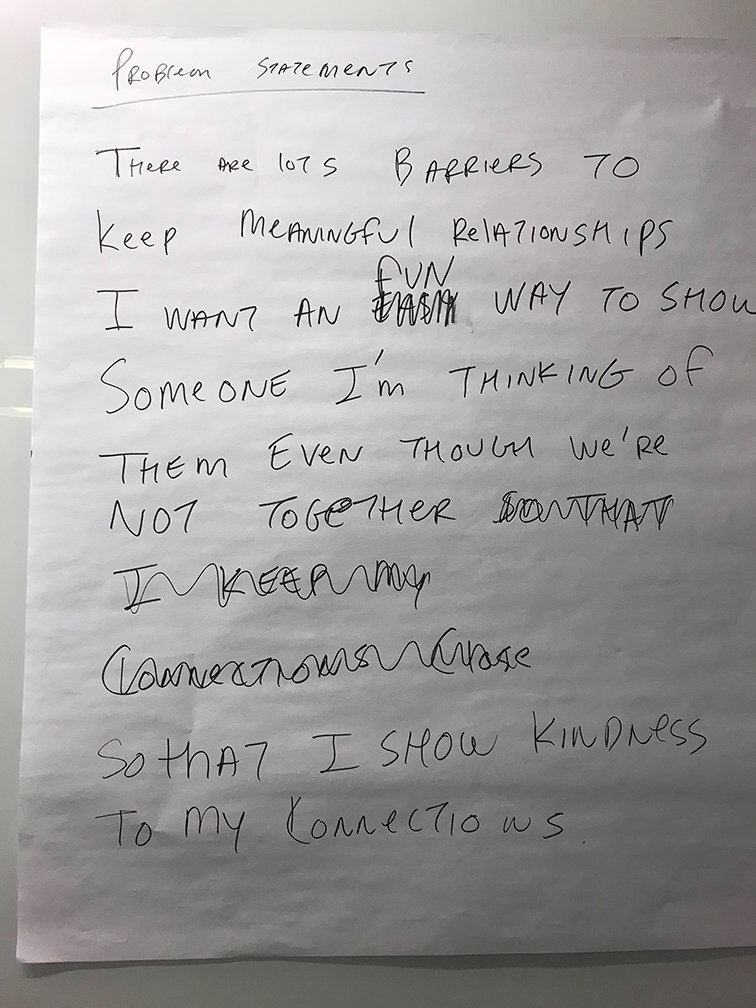 Problem Statements
There are lots Barriers to
keep meaningful relationships
fun
I want an easy way to show
Someone I'm thinking of
them even though we're
not together so that
I keep my
connections close
So that I show kindness
to my connections.